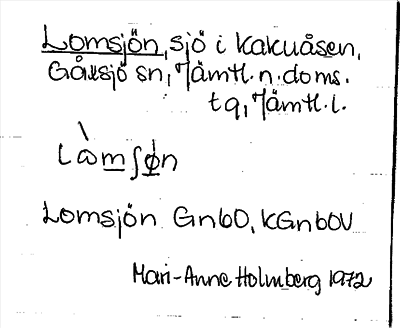 Lomsjön, sjö i Kakuåsen,
Gåxsjö sn, Jämtl. n. doms.
tq, Jämtl. l.
Lomsjön GnbO, KGnbOV
Mari-Anne Holmberg 1972